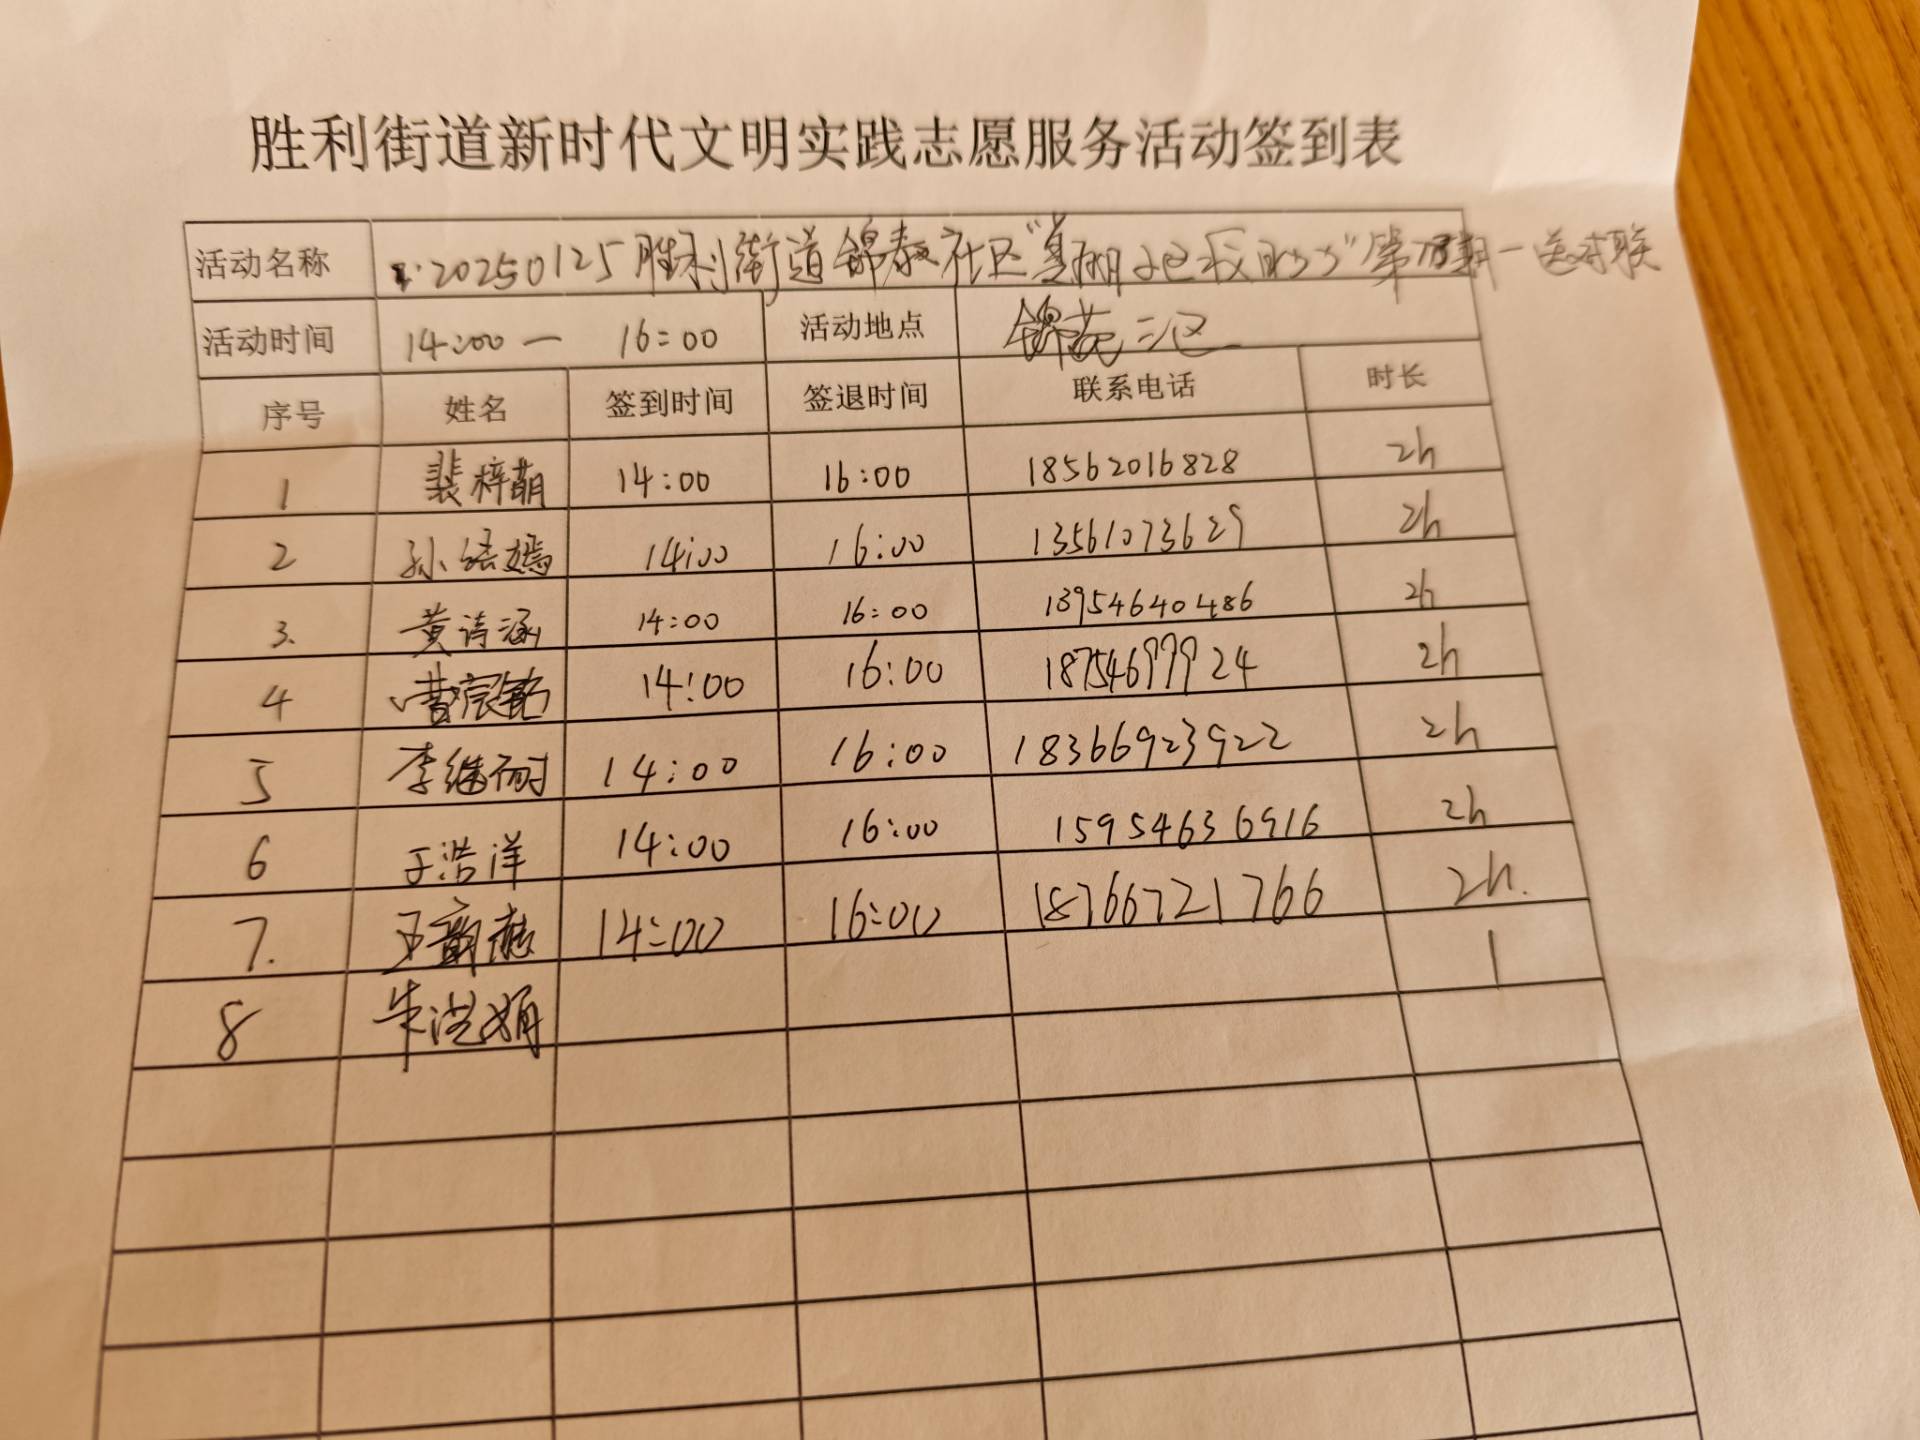 胜利街道新时代文明实践志愿服务活动签到表
活动名称 20250125胜利街道锦泰社区 一送对联
活动时间 14:00一 16:00 活动地点 锦苑二区
序号 姓名 签到时间 签退时间 联系电话 时长
1 裴梓萌 14:00 16:00 18562016828 2h
2 孙 嫣 14:00 16:00 13561073629 2h
3. 黄诗涵 14:00 16:00 13954640486 2h
4 曹宸铭 14:00 16:00 18754699924 2h
5 李继耐 14:00 16:00 18366923922 2h
6 于浩洋 14:00 16:00 15954636916 2h
7. 王韵 14:00 16:00 18766721766 2h.
8 朱洪娟